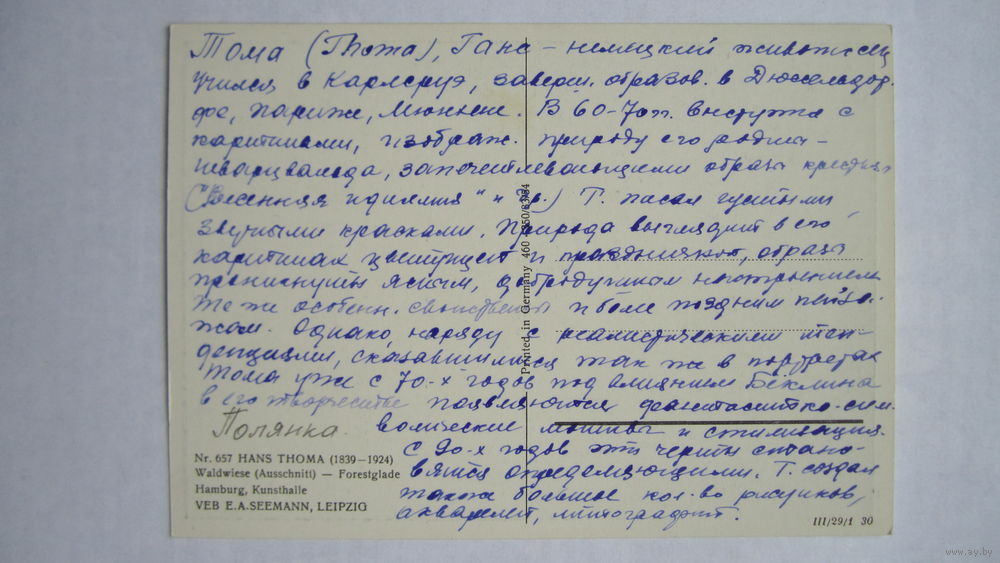 Тома (Thoma), Ганс – немецкий живописец
учился в Карлсруэ, заверш. образов. в Дюссельдор-
фе, Париже, Мюнхене. В 60–70 гг. выступил с
картинами, изображ. природу его родины –
Шварцвальда, запечатлевающими образы крестьян
("Весенняя идиллия" и др.) Т. писал густыми,
звучными красками. Природа выглядит в его
картинах цветущей и праздничной, образы
проникнуты ясным, добродушным настроением
Те же особенн. свойственны и более поздним пейза-
жам. Однако, наряду с реалистическими тен-
денциями, сказавшимися так же в портретах
Тома уже с 70-х годов под влиянием Бёклина
в его творчестве появляются фантастико-сим-
волические мотивы и стилизация.
С 90-х годов эти черты стано-
вятся определяющими. Т. создал
также большое кол-во рисунков,
акварелей, литографий.
Полянка.
Nr. 657 HANS THOMA (1839—1924)
Waldwiese (Ausschnitt) — Forestglade
Hamburg, Kunsthalle
VEB E.A.SEEMANN, LEIPZIG
Printed in Germany 460 350/83/64
III/29/1 30
www.ay.by